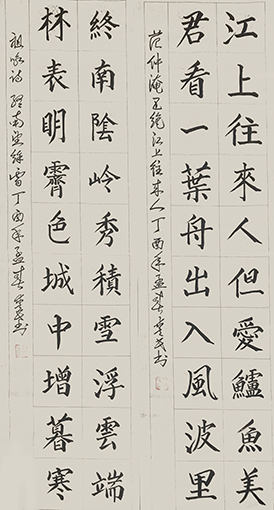 江上往來人但愛鱸魚美
君看一葉舟出入風波里
范仲淹五絶江上往來人丁酉年孟
終南陰岭秀積雪浮雲端
林表明霽色城中增暮寒
祖詠詩終南望餘雪丁酉年孟春